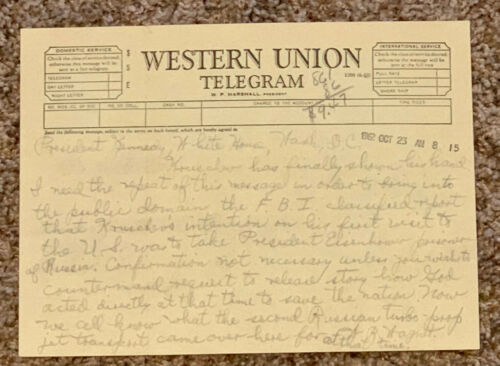 DOMESTIC SERVICE
Check the class of service desired; otherwise this message will be sent as a fast telegram
TELEGRAM
DAY LETTER
NIGHT LETTER
WESTERN UNION
TELEGRAM
W. P. MARSHALL, PRESIDENT
INTERNATIONAL SERVICE
Check the class of service desired; otherwise the message will be sent at the full rate
FULL RATE
LETTER TELEGRAM
SHORE SHIP
NO. WDS.-CL. OF SVC.
PD. OR COLL.
CASH NO.
CHARGE TO THE ACCOUNT OF
TIME FILED
Send the following message, subject to the terms on back hereof, which are hereby agreed to
1962 OCT 23 AM 8 15
President Kennedy, White House, Wash, D.C.
Kruschev has finally shown his hand
I need the repeat of this message in order to bring into
the public domain the F.B.I. classified report
that Kruschev's intention on his first visit to
the U.S. was to take President Eisenhower prisoner
of Russia. Confirmation not necessary unless you wish to
countermand request to release story how God
acted directly at that time to save the nation. Now
we all know what the second Russian turbo-prop
jet transport came over here for at that time.